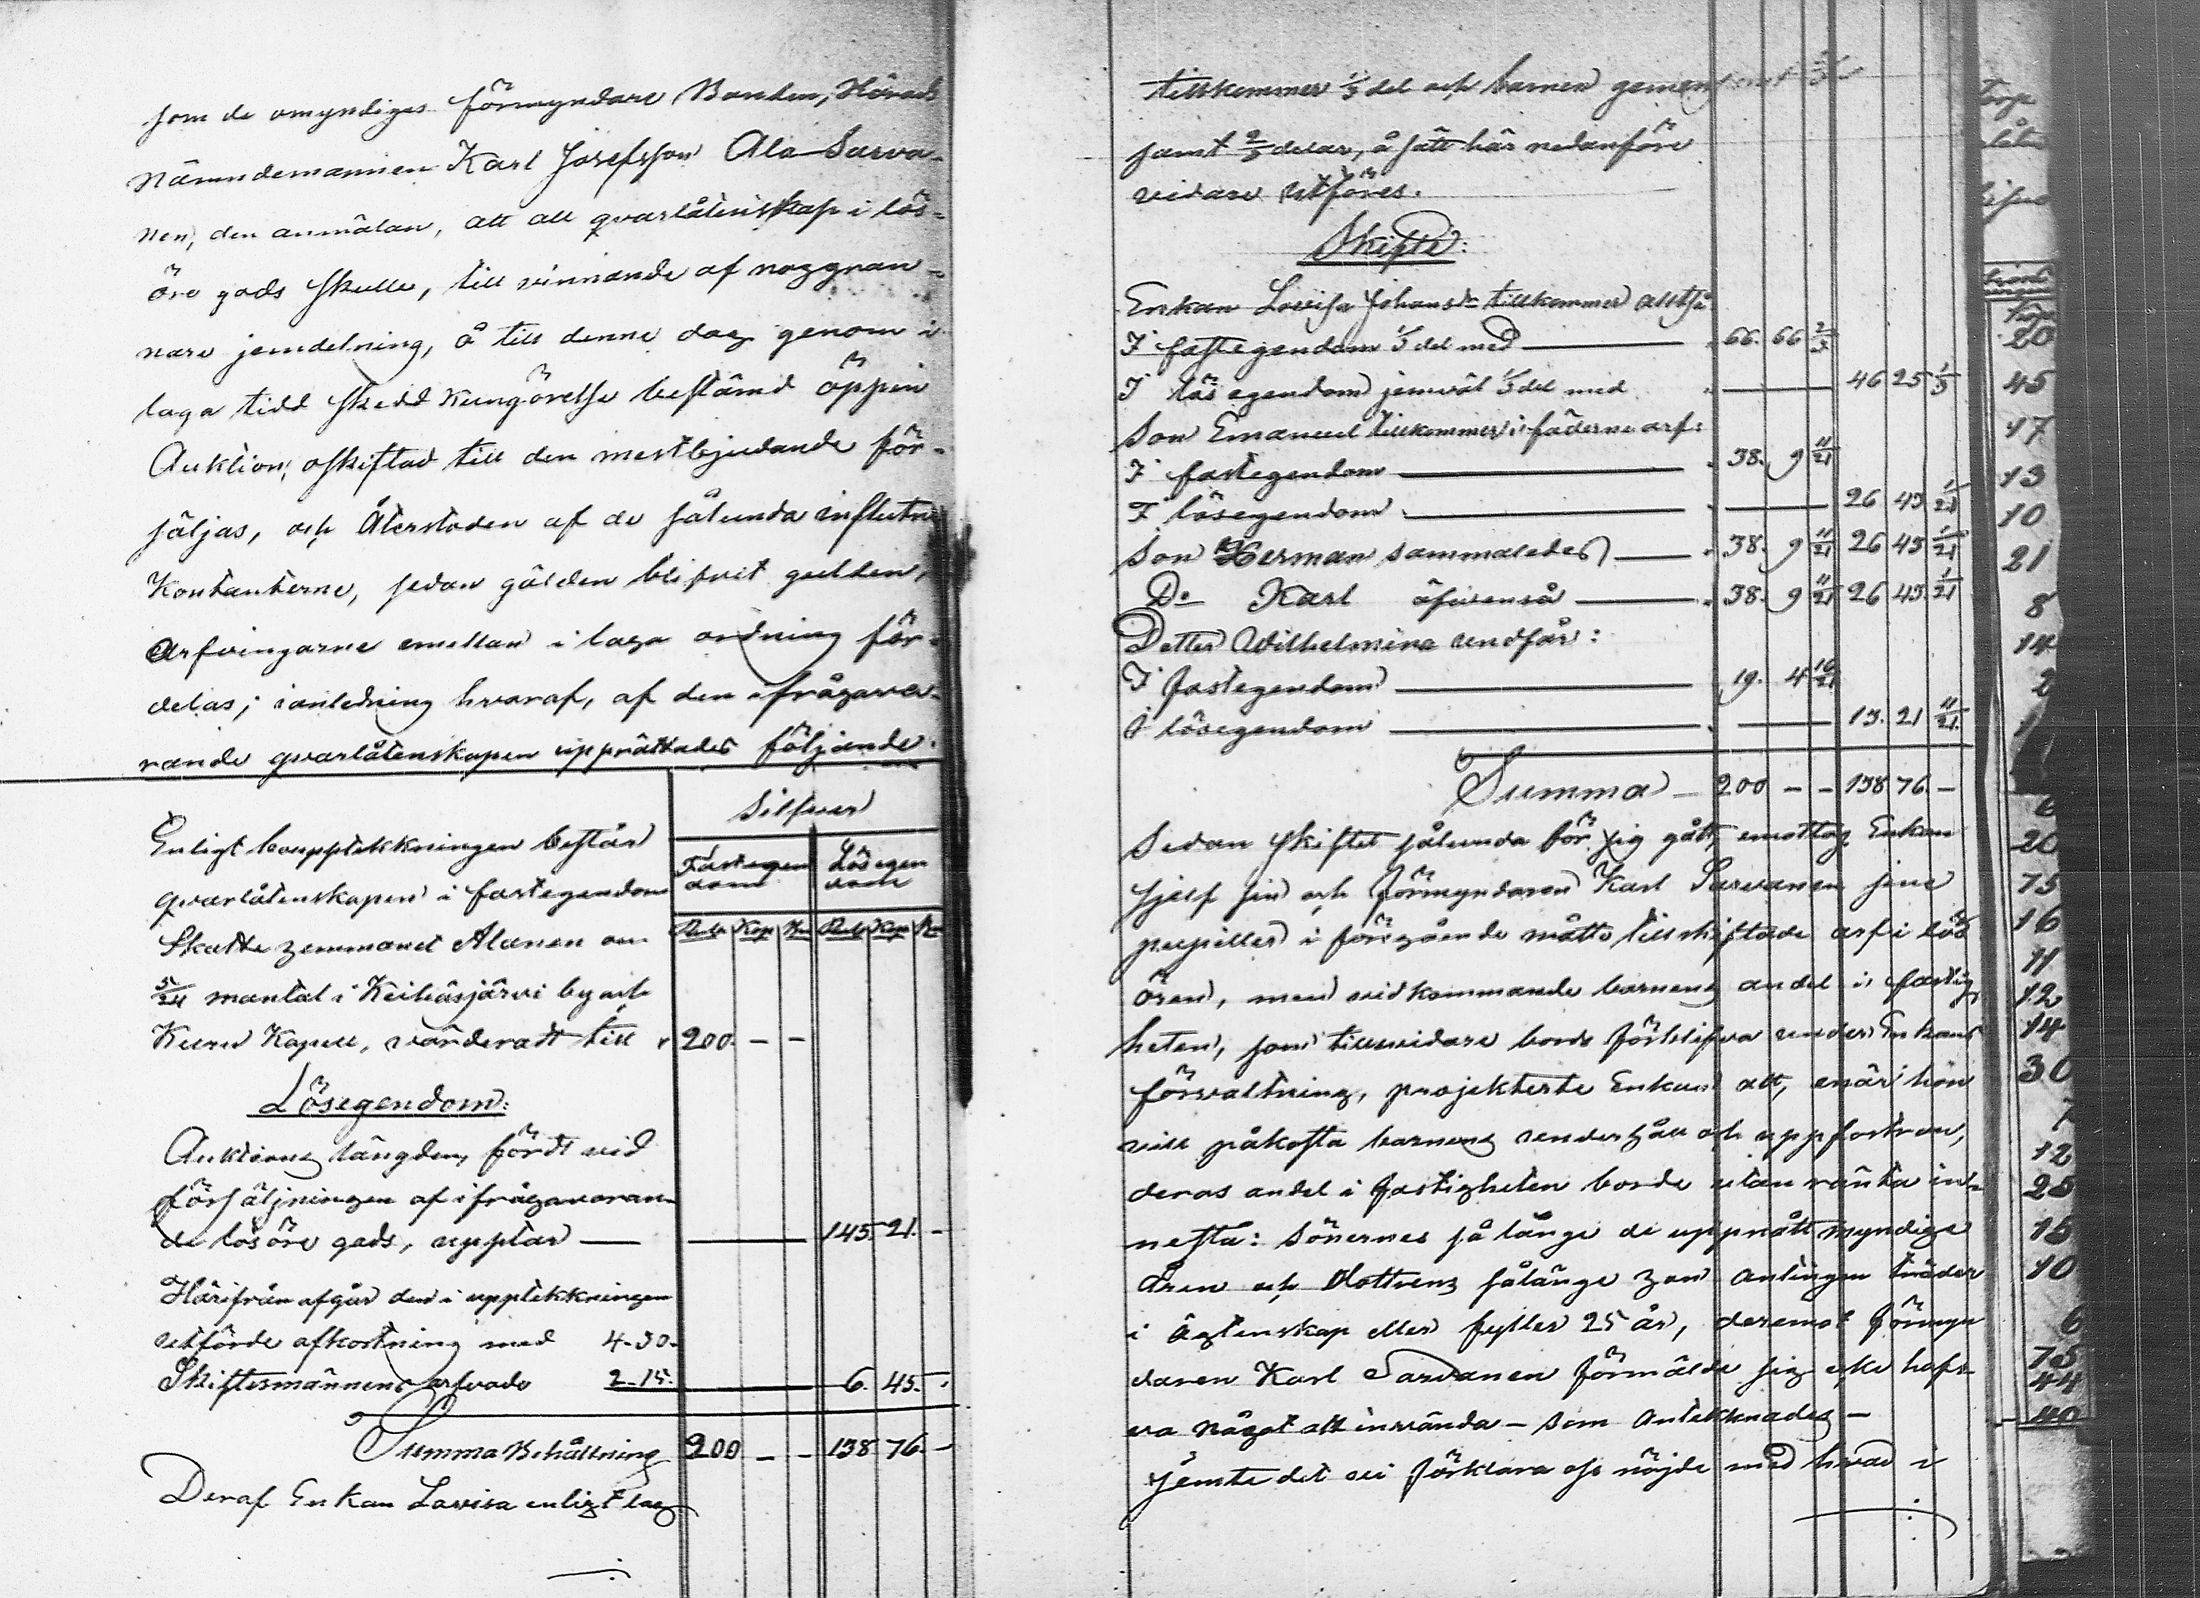 som de omyndiges förmyndare Bonden, Härads
Nämndemannen Karl Josefsson Ala Sarva-
nen, den anmälan, att all qvarlåtenskap i lös-
öre gods skulle, till vinnande af noggran-
nare jemdelning, å till denne dag genom i
laga tidd skedd Kungörelse bestämd öppen
Auktion, oskiftad till den mestbjudande för-
säljas, och Återstoden af de sålunda influtna
Kontanterne, sedan gälden blifvit gulden,
Arfvingarne emellan i laga ordning för-
delas; i anledning hvaraf, af den ifrågava-
rande qvarlåtenskapen upprättades följande:
Silfver
Enligt bouppteckningen består
Fastegen dom Lösegen dom
qvarlåtenskapen i fastegendom
Skatte hemmanet Alanen om
Rub Kop Rub Kop
5/24 mantal i Keihäsjärvi by och
Kuru Kapell, värderadt till " 200. - -
Lösegendom:
Auktions längden, fördt vid
försäljningen af ifrågavaran-
de lösöre gods, upptar — 145. 21. -
Härifrån afgår den i uppteckningen
utförde afkortning med 4-30.
Skiftesmännens arfvode 2-15. 6. 45. -
Summa Behållning 200 - - 138 76. -
Deraf Enkan Lovisa enligt lag
tillkommer 1/3 del och barnen gemen
samt 2/3 delar, å sätt här nedanföre
vidare utföres.
Skifte:
Enkan Lovisa Johansdr tillkommer alltså
I fastegendom 1/3 del med — 66. 66 2/3
I lösegendom jemväl 1/3 del med — 46 25 1/3
Son Emanuel tillkommer i fäderne arf:
I fastegendom — 38. 9 11/21
I lösegendom — 26 43 1/21
Son Herman sammaledes — 38. 9 11/21 26 43 1/21
Do Karl äfvenså — 38. 9 11/21 26 43. 1/21
Dotter Wilhelmina undfår:
I fastegendom — 19. 4 16/21
I lösegendom — 13. 21 11/21
Summa — 200 - - 138 76 -
Sedan skiftet sålunda för sig gått, emottog Enkan
sjelf sin och förmyndaren Karl Sarvanen sine
pupiller i föregående måtto tillskiftade arf i lös
ören, men vidkommande barnens andel i fastig
heten, som tillsvidare borde förblifva under Enkans
förvaltning, projekterte Enkan att, enär hon
vill påkosta barnens underhåll och uppfostran,
deras andel i fastigheten borde utan ränta in-
nesta: Sönernes så länge de uppnått myndige
åren och Dottrens sålänge hon antingen träder
i ägtenskap eller fyller 25 år, deremot förmyn
daren Karl Sarvanen förmälde sig icke hafv
va något att invända - som antecknades -
Jemte det vi förklara oss nöjde med hvad i
20
45
17
13
10
21
8
14
2
20
75
16
11
12
14
30
7
12
25
15
10
6
75
44
40